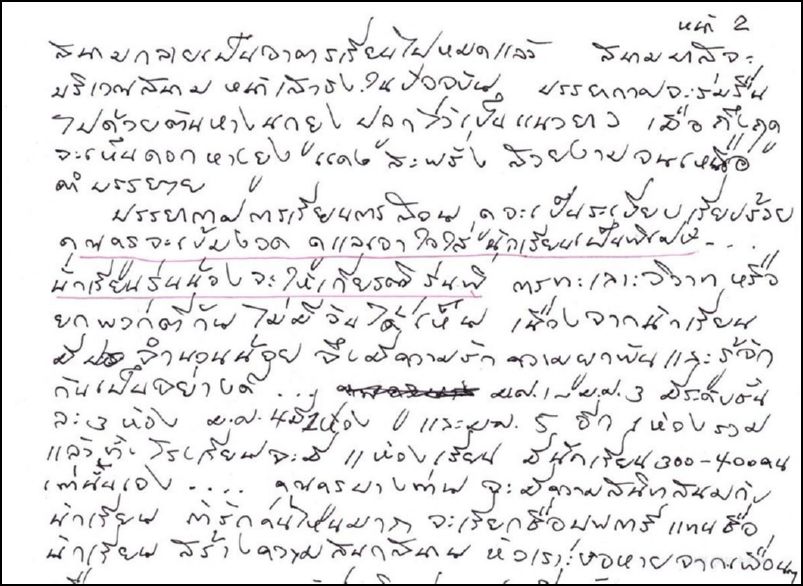 หน้า 2
สนามกลายเป็นอาคารเรียนไปหมดแล้ว สนามหญ้าสิจะ
บริเวณสนาม หน้าเสาธง ในปัจจุบัน บรรยากาศจะร่มรื่น
ไปด้วยต้นหางนกยูง ปลูกไว้เป็นแนวยาว เมื่อถึงฤดู
จะเห็นดอกหางยูง แดง สะพรั่ง สวยงามจนเหนือ
คำบรรยาย
บรรยากาศการเรียนการสอน ก็จะเป็นระเบียบ เรียบร้อย
คุณครูจะเข้มงวด ดูแลเอาใจใส่ นักเรียนเป็นพิเศษ ....
นักเรียนรุ่นน้องจะให้เกียรติรุ่นพี่ การทะเลาะวิวาท หรือ
ยกพวกตีกัน ไม่มีวันได้เห็น เนื่องจากนักเรียน
มี จำนวนน้อย จึงมีความรัก ความผูกพัน และรู้จัก
กันเป็นอย่างดี .... ม.ศ.1-ม.ศ.3 มีระดับชั้น
ละ 3 ห้อง ม.ศ.4 มี 1 ห้อง และ ม.ศ. 5 อีก 1 ห้อง รวม
แล้วทั้งโรงเรียนจะมี 11 ห้องเรียน มีนักเรียน 300-400 คน
เท่านั้นเอง .... คุณครูบางท่าน จะมีความสนิทสนมกับ
นักเรียน ถ้ารักคนไหนมาก จะเรียกชื่อ แทนชื่อ
นักเรียน สร้างความสนุกสนาน หัวเราะ จากเพื่อนๆ